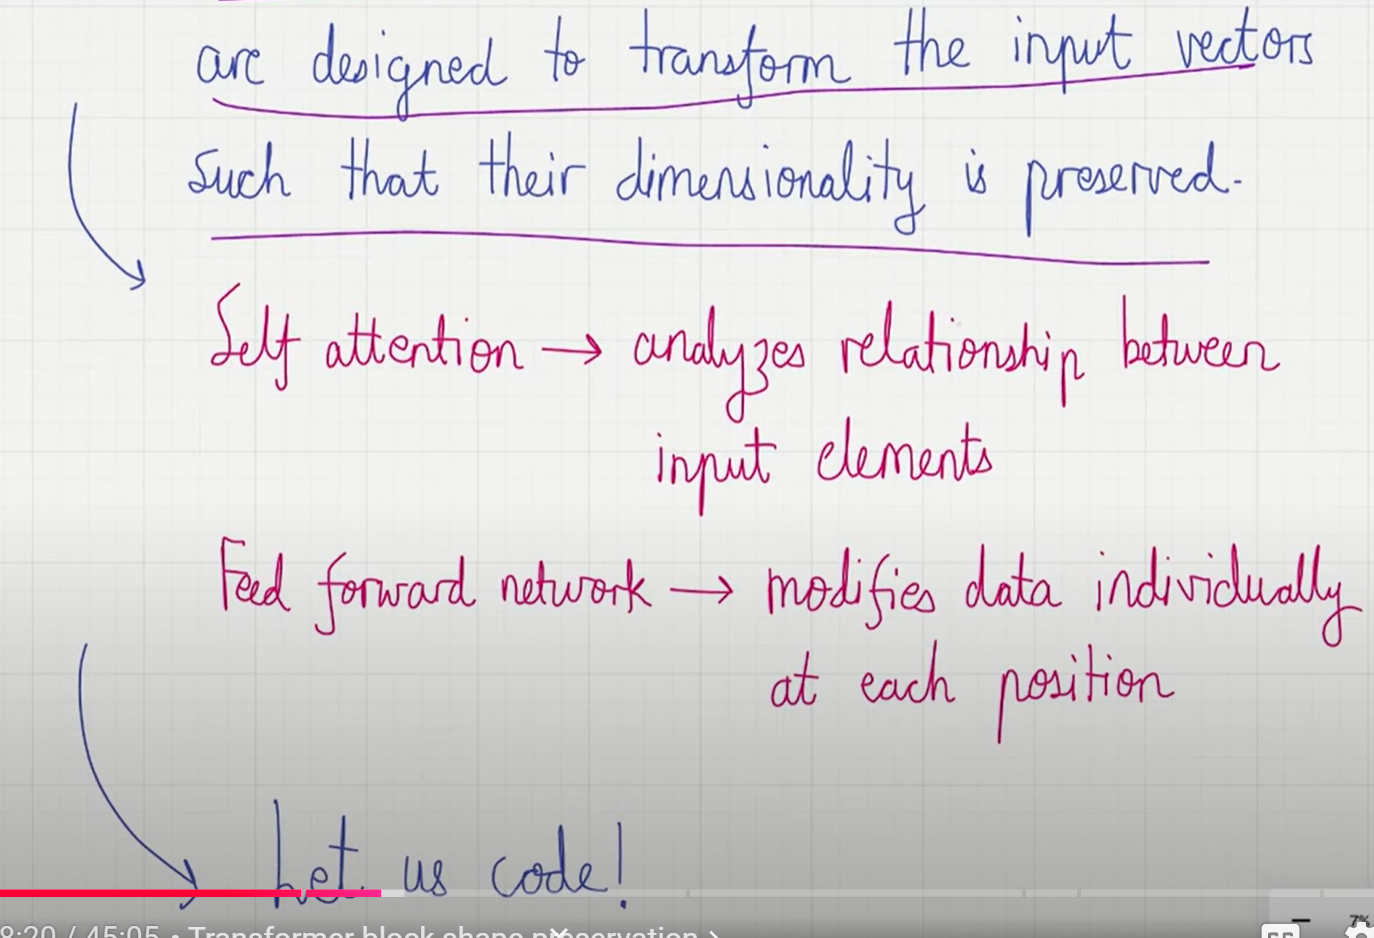 are designed to transform the input vectors
such that their dimensionality is preserved.
Self attention → analyzes relationship between
input elements
Feed forward network → modifies data individually
at each position
Let us code!
8:20 / 45:05 • Transformer block shape preservation >
7%